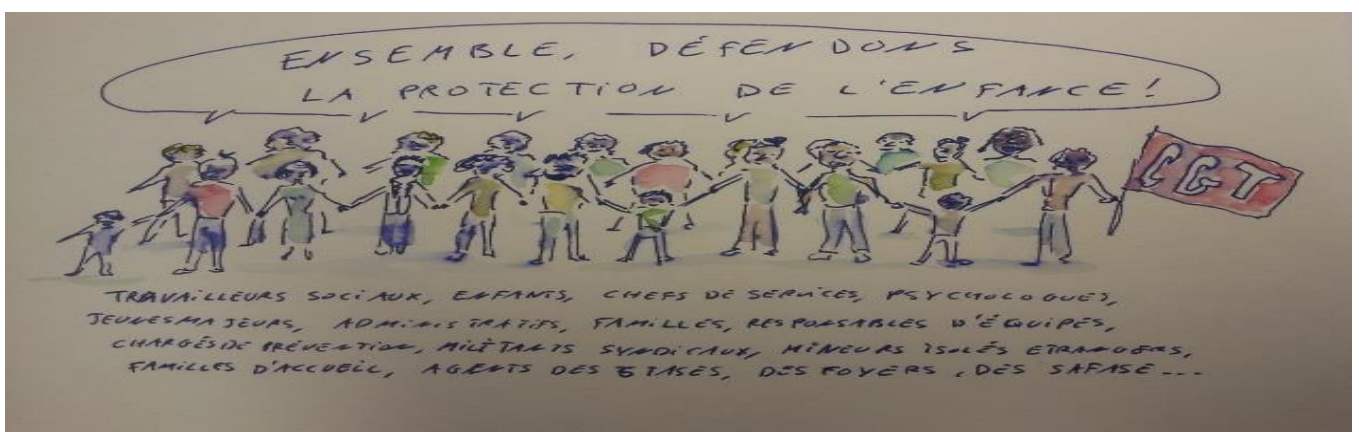 ENSEMBLE, DÉFENDONS
LA PROTECTION DE L'ENFANCE!
CGT
TRAVAILLEURS SOCIAUX, ENFANTS, CHEFS DE SERVICES, PSYCHOLOGUES,
JEUNES MAJEURS, ADMINISTRATIFS, FAMILLES, RESPONSABLES D'ÉQUIPES,
CHARGÉS DE PRÉVENTION, MILITANTS SYNDICAUX, MINEURS ISOLÉS ETRANGERS,
FAMILLES D'ACCUEIL, AGENTS DES DES FOYERS, DES SAFASE...